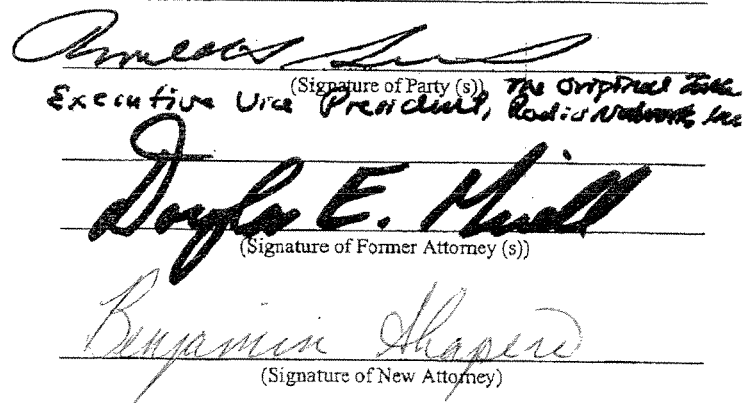 (Signature of Party (s)) The Original
Executive Vice President, Radio Network, Inc
Douglas E.
(Signature of Former Attorney (s))
Benjamin Shapero
(Signature of New Attorney)